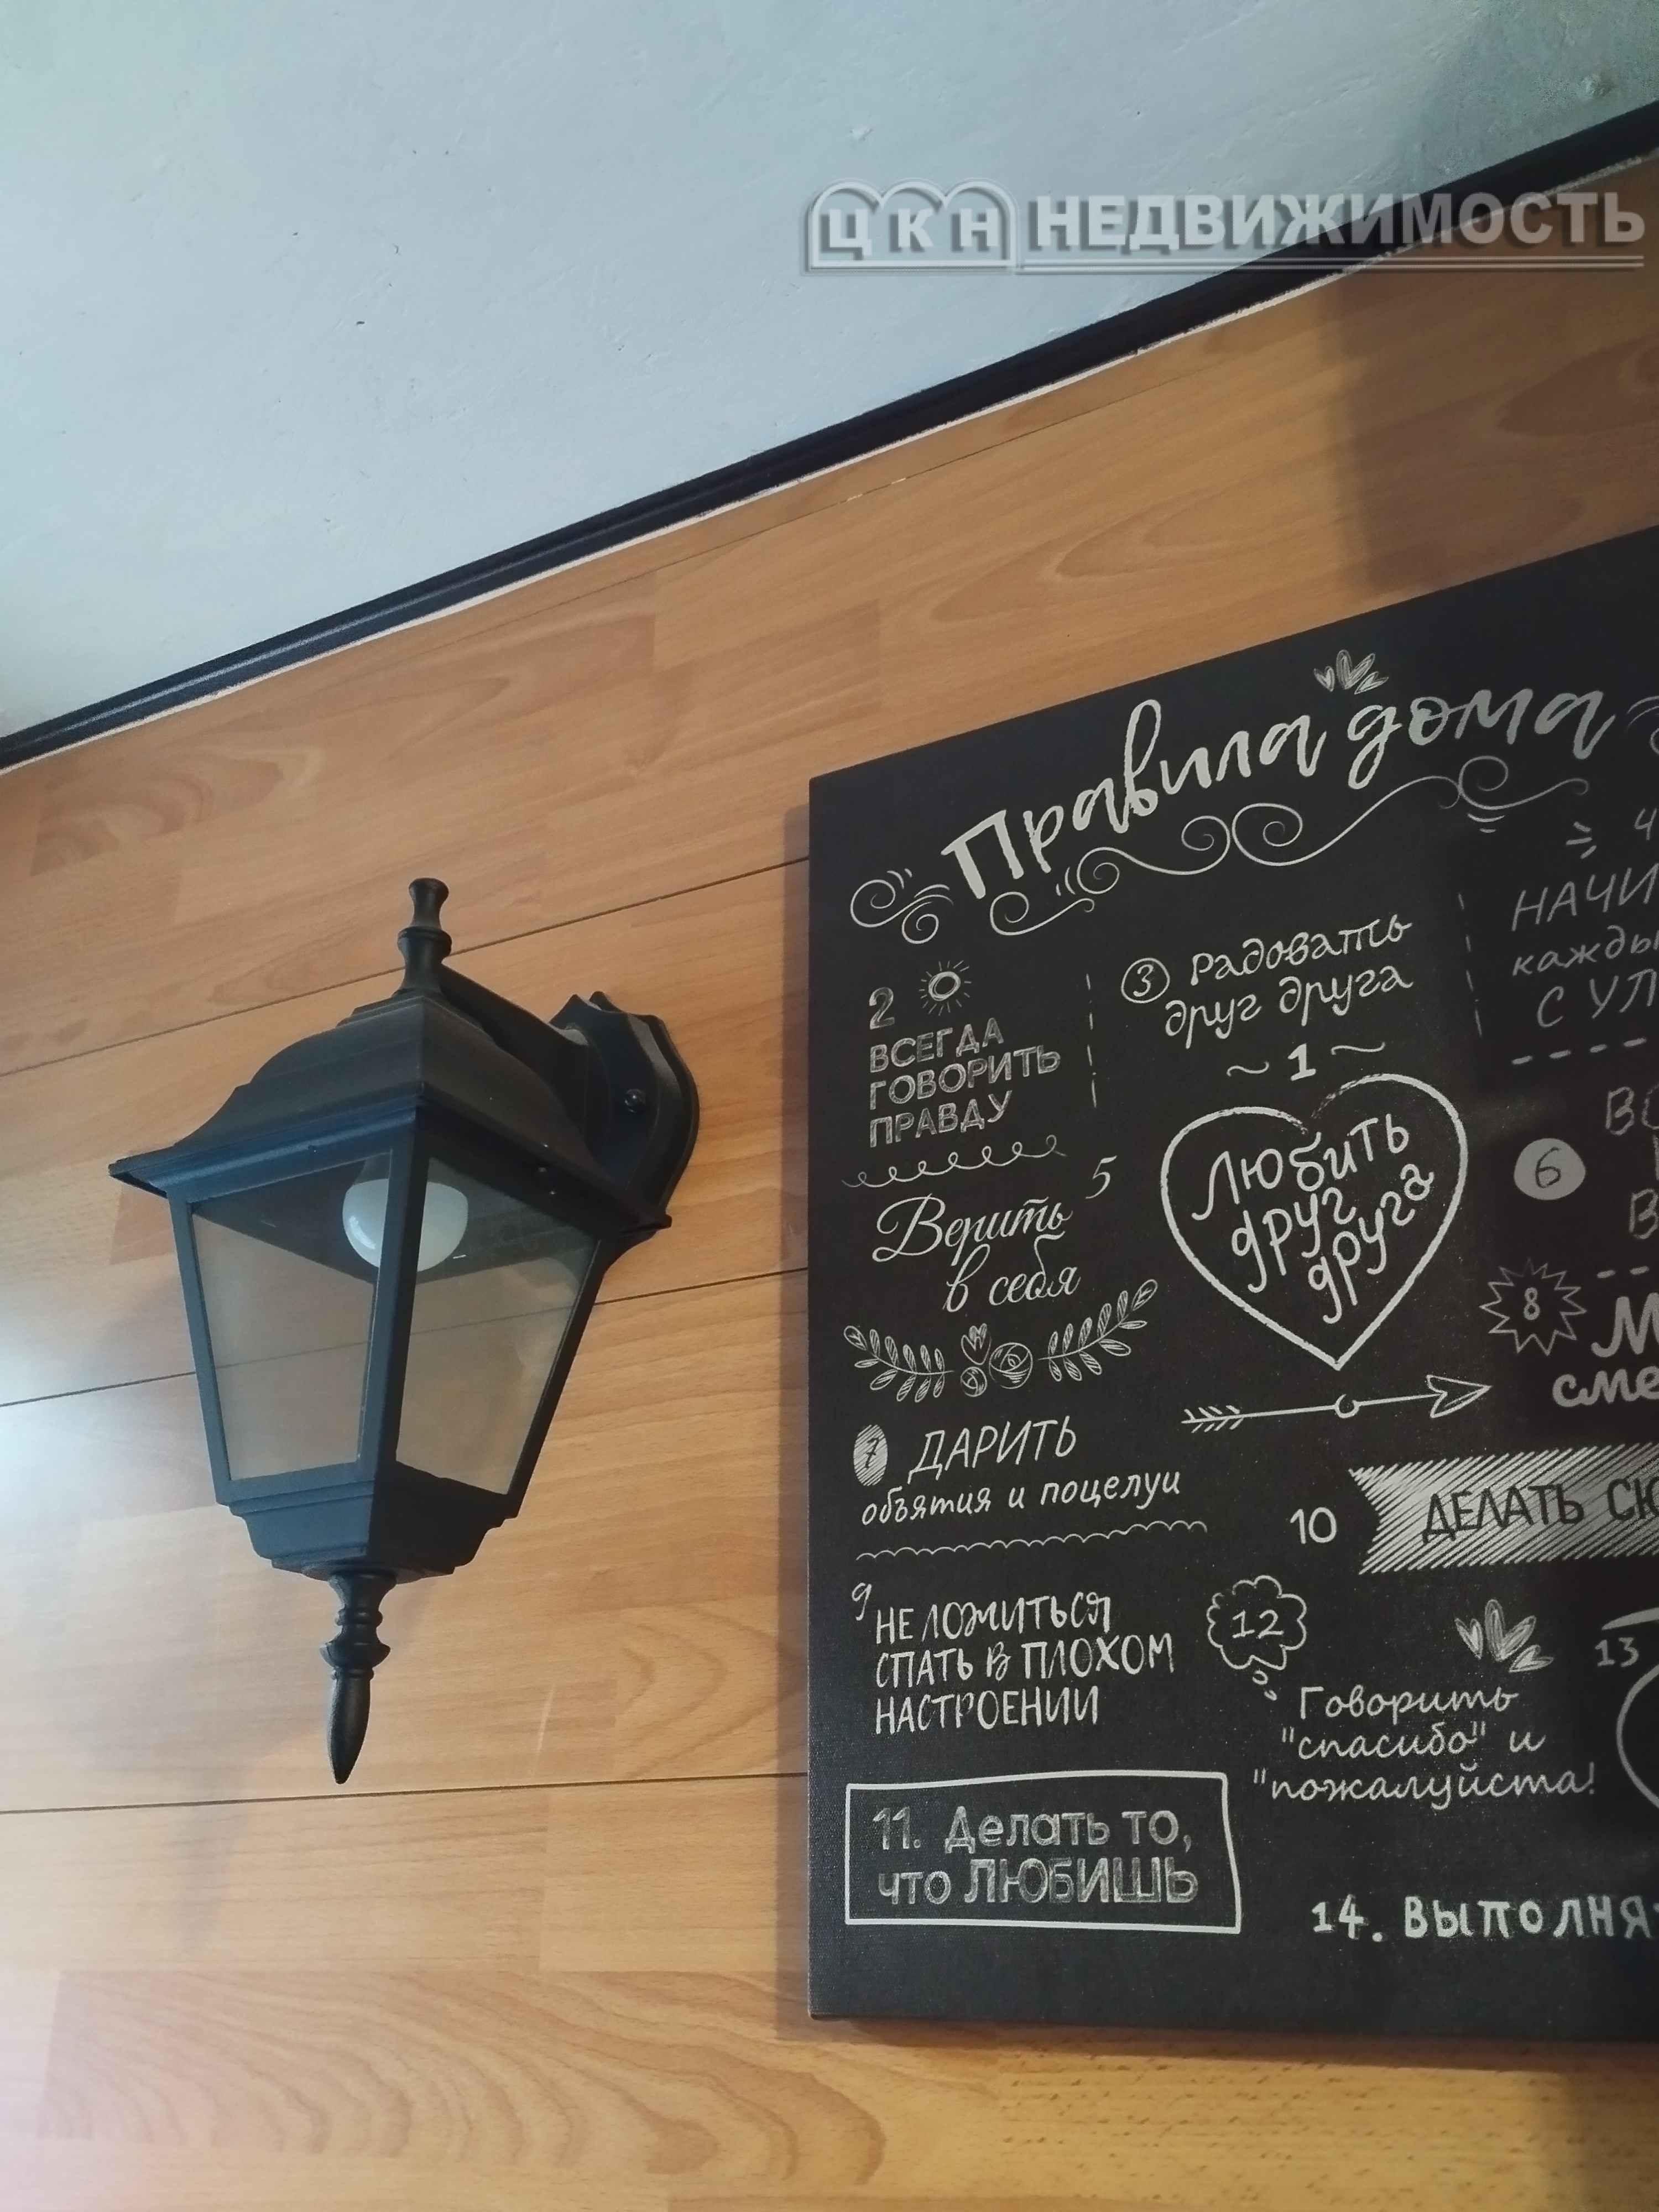 ЦКН НЕДВИЖИМОСТЬ
Правила дома
2
ВСЕГДА
ГОВОРИТЬ
ПРАВДУ
3 Радовать
друг друга
1
Любить
друг
друга
4
НАЧИ
кажды
С УЛ
5
Верить
в себя
6
ВС
В
7 ДАРИТЬ
объятия и поцелуи
8
М
сме
9
НЕ ЛОЖИТЬСЯ
СПАТЬ В ПЛОХОМ
НАСТРОЕНИИ
10 ДЕЛАТЬ СЮ
11. Делать то,
что ЛЮБИШЬ
12
Говорить
"спасибо" и
"пожалуйста!
13
14. ВЫПОЛНЯ